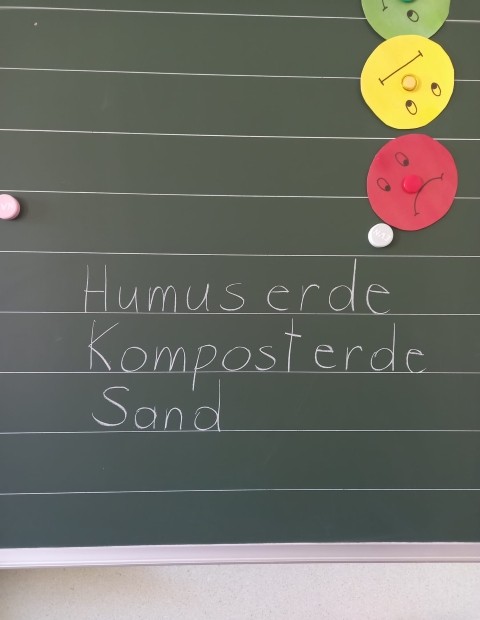 Humuserde
Komposterde
Sand